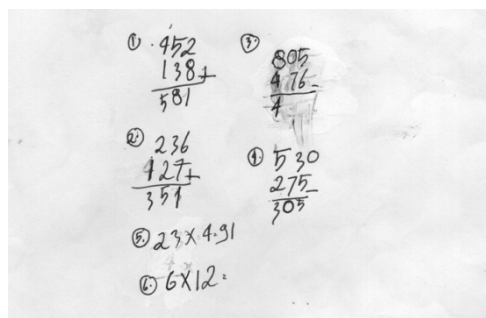 ① 452
138+
581
② 236
127+
351
③ 805
476-
4
④ 530
275-
305
⑤ 23×4=91
⑥ 6×12=